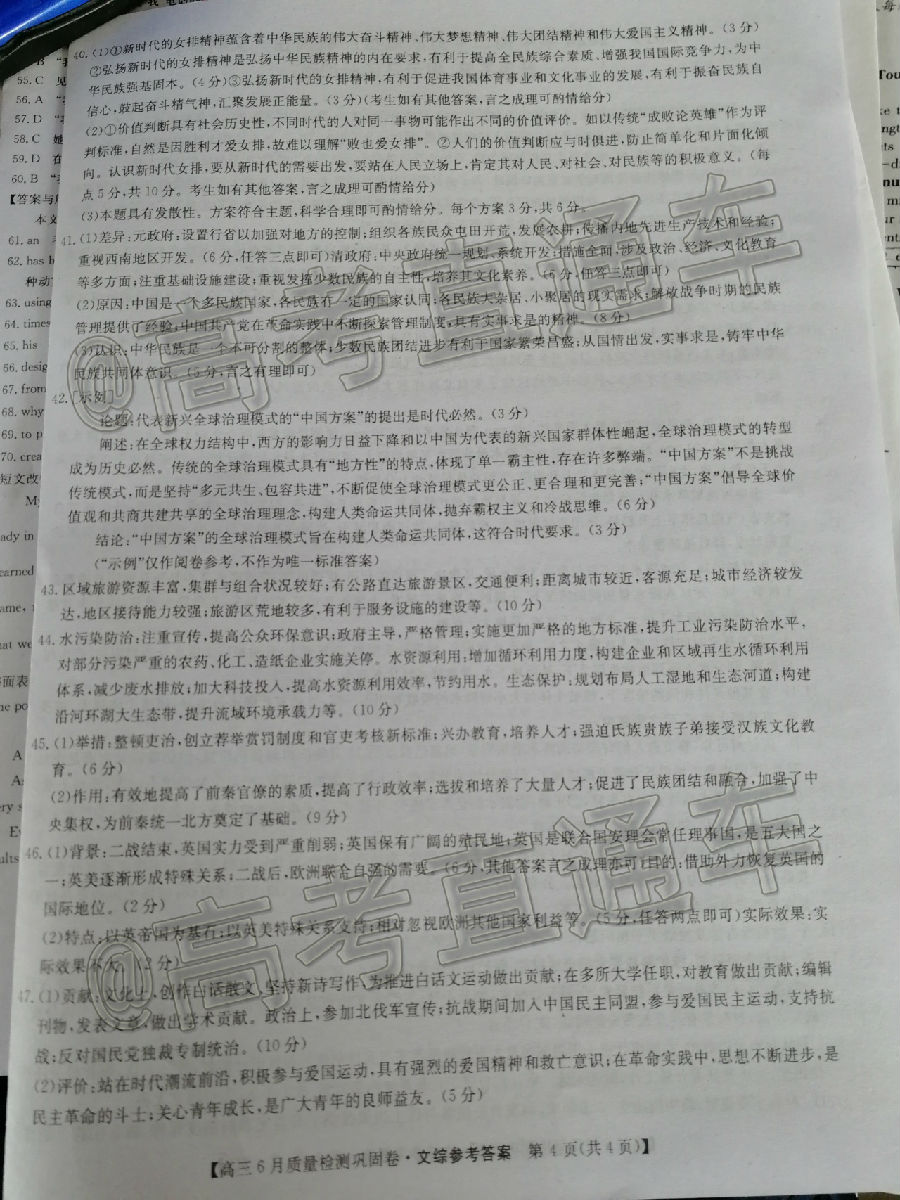 40.(1)①新时代的女排精神蕴含着中华民族的伟大奋斗精神、伟大梦想精神、伟大团结精神和伟大爱国主义精神。(3分)
②弘扬新时代的女排精神是弘扬中华民族精神的内在要求,有利于提高全民族综合素质、增强我国国际竞争力,为中
华民族强基固本。(4分)③弘扬新时代的女排精神,有利于促进我国体育事业和文化事业的发展,有利于振奋民族自
信心,鼓起奋斗精气神,汇聚发展正能量。(3分)(考生如有其他答案,言之成理可酌情给分)
(2)①价值判断具有社会历史性,不同时代的人对同一事物可能作出不同的价值评价。如以传统“成败论英雄”作为评
判标准,自然是因胜利才爱女排,故难以理解“败也爱女排”。②人们的价值判断应与时俱进,防止简单化和片面化倾
向。认识新时代女排,要从新时代的需要出发,要站在人民立场上,肯定其对人民、对社会、对民族等的积极意义。(每
点5分,共10分。考生如有其他答案,言之成理可酌情给分)
(3)本题具有发散性。方案符合主题,科学合理即可酌情给分。每个方案3分,共6分。
41.(1)差异:元政府:设置行省以加强对地方的控制;组织各族民众屯田开荒,发展农耕;传播内地先进生产技术和经验;
重视西南地区开发。(6分,任答三点即可)清政府:中央政府统一规划、系统开发;措施全面,涉及政治、经济、文化教育
等多方面;注重基础设施建设;重视发挥少数民族的自主性,培养其文化素养。(6分,任答三点即可)
(2)原因:中国是一个多民族国家,各民族有一定的国家认同;各民族大杂居、小聚居的现实需求;解放战争时期的民族
管理提供了经验;中国共产党在革命实践中不断探索管理制度,具有实事求是的精神。(8分)
(3)认识:中华民族是一个不可分割的整体;少数民族团结进步有利于国家繁荣昌盛;从国情出发,实事求是,铸牢中华
民族共同体意识。(5分,言之有理即可)
42.[示例]
论题:代表新兴全球治理模式的“中国方案”的提出是时代必然。(3分)
阐述:在全球权力结构中,西方的影响力日益下降和以中国为代表的新兴国家群体性崛起,全球治理模式的转型
成为历史必然。传统的全球治理模式具有“地方性”的特点,体现了单一霸主性,存在许多弊端。“中国方案”不是挑战
传统模式,而是坚持“多元共生、包容共进”,不断促使全球治理模式更公正、更合理和更完善;“中国方案”倡导全球价
值观和共商共建共享的全球治理理念,构建人类命运共同体,抛弃霸权主义和冷战思维。(6分)
结论:“中国方案”的全球治理模式旨在构建人类命运共同体,这符合时代要求。(3分)
(“示例”仅作阅卷参考,不作为唯一标准答案)
43.区域旅游资源丰富,集群与组合状况较好;有公路直达旅游景区,交通便利;距离城市较近,客源充足;城市经济较发
达,地区接待能力较强;旅游区荒地较多,有利于服务设施的建设等。(10分)
44.水污染防治:注重宣传,提高公众环保意识;政府主导,严格管理;实施更加严格的地方标准,提升工业污染防治水平,
对部分污染严重的农药、化工、造纸企业实施关停。水资源利用:增加循环利用力度,构建企业和区域再生水循环利用
体系,减少废水排放;加大科技投入,提高水资源利用效率,节约用水。生态保护:规划布局人工湿地和生态河道;构建
沿河环湖大生态带,提升流域环境承载力等。(10分)
45.(1)举措:整顿吏治,创立荐举赏罚制度和官吏考核新标准;兴办教育,培养人才;强迫氏族贵族子弟接受汉族文化教
育。(6分)
(2)作用:有效地提高了前秦官僚的素质,提高了行政效率;选拔和培养了大量人才;促进了民族团结和融合,加强了中
央集权,为前秦统一北方奠定了基础。(9分)
46.(1)背景:二战结束,英国实力受到严重削弱;英国保有广阔的殖民地;英国是联合国安理会常任理事国,是五大国之
一;英美逐渐形成特殊关系;二战后,欧洲联合自强的需要。(6分,其他答案言之成理亦可)目的:借助外力恢复英国的
国际地位。(2分)
(2)特点:以英帝国为基石;以英美特殊关系支持;相对忽视欧洲其他国家利益等。(5分,任答两点即可)实际效果:实
际效果不大。(2分)
47.(1)贡献:文化上,创作白话散文,坚持新诗写作,为推进白话文运动做出贡献;在多所大学任职,对教育做出贡献;编辑
刊物,发表文章,做出学术贡献。政治上,参加北伐军宣传;抗战期间加入中国民主同盟,参与爱国民主运动,支持抗
战;反对国民党独裁专制统治。(10分)
(2)评价:站在时代潮流前沿,积极参与爱国运动,具有强烈的爱国精神和救亡意识;在革命实践中,思想不断进步,是
民主革命的斗士;关心青年成长,是广大青年的良师益友。(5分)
【高三6月质量检测巩固卷·文综参考答案 第4页(共4页)】
@高考直通车
@高考直通车
55. C
56. A
57. D
58. C
59. D
60. B
61. an
63. using
64. times
65. his
67. from
68. why